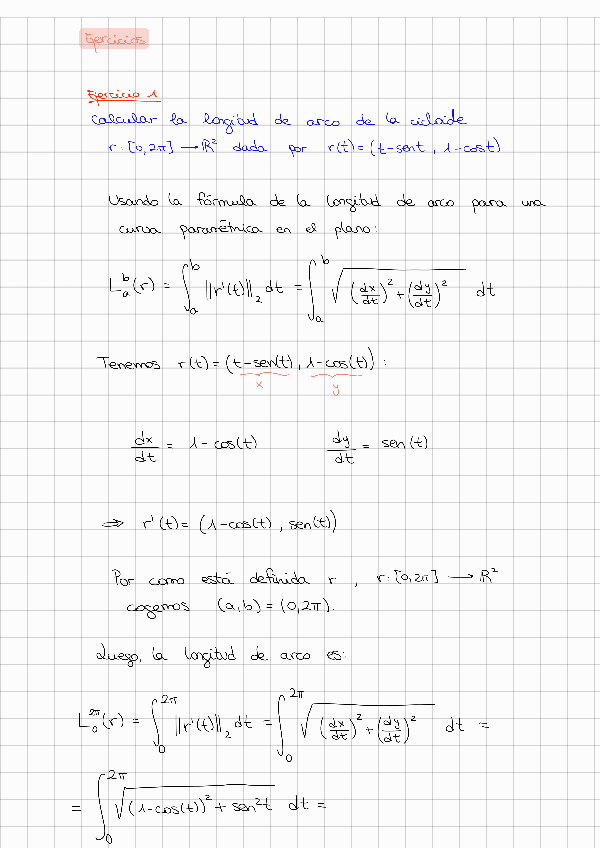 Ejercicios
Ejercicio 1
Calcular la longitud de arco de la cicloide
r: [0,2π] → ℝ² dada por r(t)=(t-sent, 1-cost)
Usando la fórmula de la longitud de arco para una
curva paramétrica en el plano:
L_a^b(r) = ∫_a^b ‖r'(t)‖₂ dt = ∫_a^b √((dx/dt)² + (dy/dt)²) dt
Tenemos r(t) = (t-sen(t), 1-cos(t)) :
x y
dx/dt = 1-cos(t) dy/dt = sen(t)
⇒ r'(t) = (1-cos(t), sen(t))
Por como está definida r , r: [0,2π] → ℝ²
cogemos (a,b) = (0,2π).
Luego, la longitud de arco es:
L_0^{2π}(r) = ∫_0^{2π} ‖r'(t)‖₂ dt = ∫_0^{2π} √((dx/dt)² + (dy/dt)²) dt =
= ∫_0^{2π} √((1-cos(t))² + sen²t) dt =